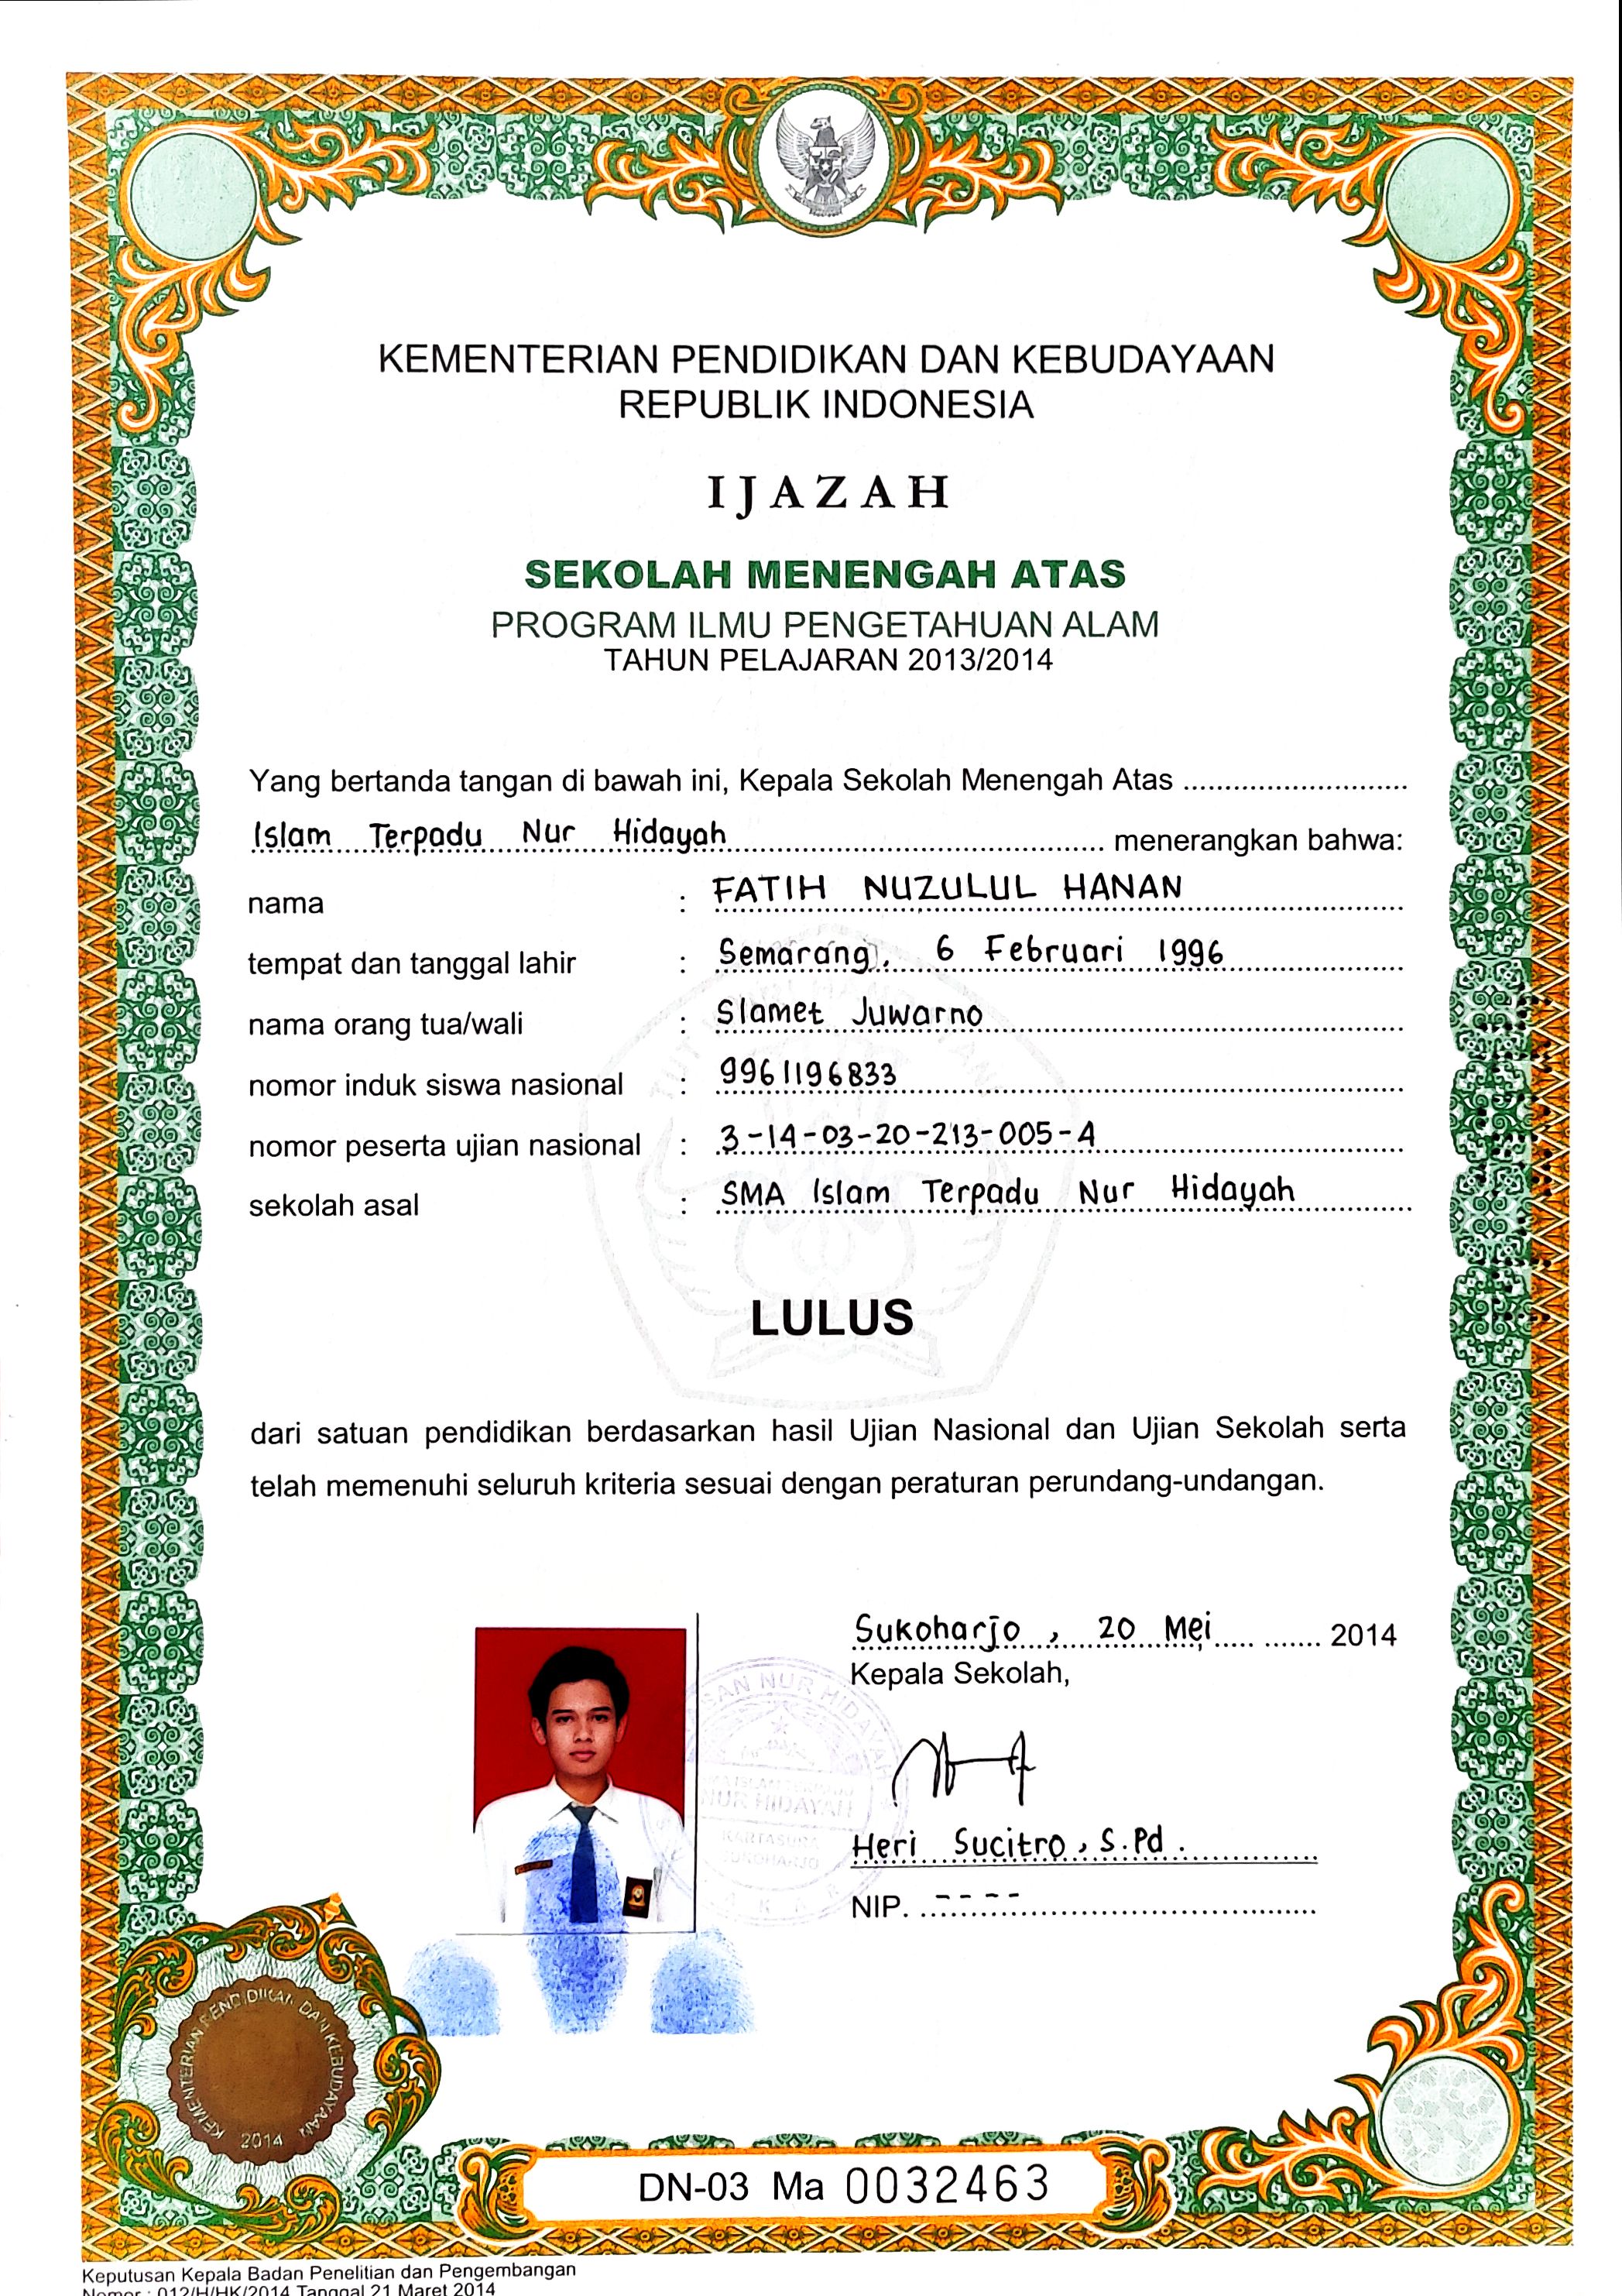 KEMENTERIAN PENDIDIKAN DAN KEBUDAYAAN
REPUBLIK INDONESIA
IJAZAH
SEKOLAH MENENGAH ATAS
PROGRAM ILMU PENGETAHUAN ALAM
TAHUN PELAJARAN 2013/2014
Yang bertanda tangan di bawah ini, Kepala Sekolah Menengah Atas ...........................
Islam Terpadu Nur Hidayah ............................................. menerangkan bahwa:
nama : FATIH NUZULUL HANAN
tempat dan tanggal lahir : Semarang, 6 Februari 1996
nama orang tua/wali : Slamet Juwarno
nomor induk siswa nasional : 9961196833
nomor peserta ujian nasional : 3-14-03-20-213-005-4
sekolah asal : SMA Islam Terpadu Nur Hidayah
LULUS
dari satuan pendidikan berdasarkan hasil Ujian Nasional dan Ujian Sekolah serta
telah memenuhi seluruh kriteria sesuai dengan peraturan perundang-undangan.
Sukoharjo, 20 Mei 2014
Kepala Sekolah,
NUR HIDAYAH
KARTASURA
SUKOHARJO
Heri Sucitro, S.Pd.
NIP. ----
KEMENTERIAN PENDIDIKAN DAN KEBUDAYAAN
2014
DN-03 Ma 0032463
Keputusan Kepala Badan Penelitian dan Pengembangan
Nomor : 012/H/HK/2014 Tanggal 21 Maret 2014